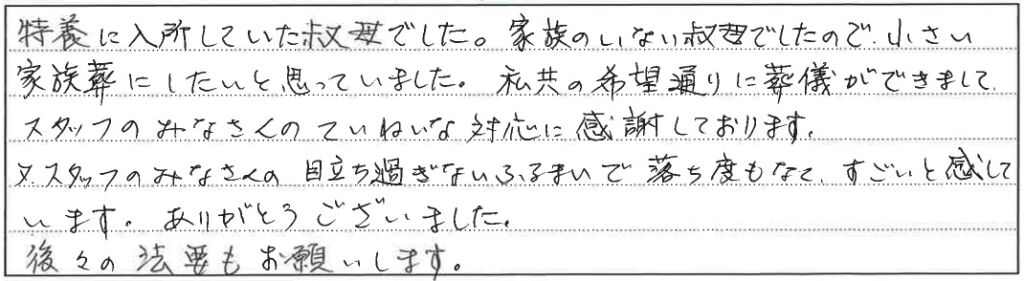 特養に入所していた叔母でした。家族のいない叔母でしたので、小さい
家族葬にしたいと思っていました。私共の希望通りに葬儀ができまして、
スタッフのみなさんのていねいな対応に感謝しております。
又、スタッフのみなさんの目立ち過ぎないふるまいで落ち度もなく、すごいと感して
います。ありがとうございました。
後々の法要もお願いします。